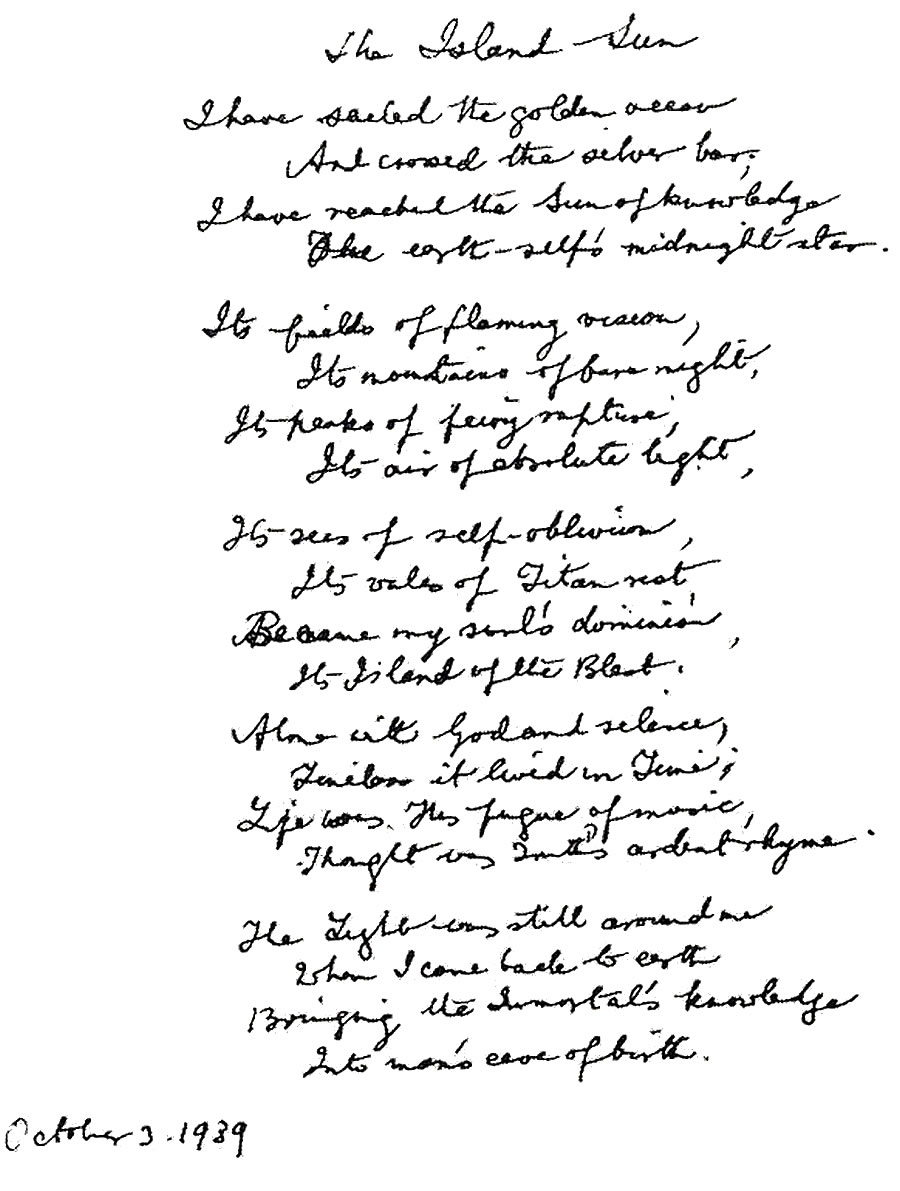 The Island Sun
I have sailed the golden ocean
And crossed the silver bar;
I have reached the Sun of knowledge
The earth-self's midnight star.
Its fields of flaming vision,
Its mountains of bare might,
Its peaks of fiery rapture,
Its air of absolute light,
Its seas of self-oblivion,
Its vales of Titan rest
Became my soul's dominion,
Its Island of the Blest.
Alone with God and silence,
Timeless it lived in Time;
Life was His fugue of music,
Thought was Truth's ardent rhyme.
The Light was still around me
When I came back to earth
Bringing the Immortal's knowledge
Into man's cave of birth.
October 3. 1939